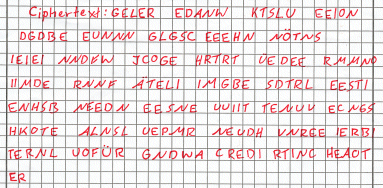 Ciphertext: GELER EDANW KTSLU EEION
DGDBE EUNNN GLGSC EEEHN NÖTNS
IEIEI NNDEW JCOGE HRTRT UEDEE RMMNO
IIMDE RNNF ATELI IMGBE SDTRL EESTI
ENHSB NEEDN EESNE UUIIT TENUU ECNGS
HKOTE ALNSL UEPMR NEUDH VNREE IERBI
TERNL UOFÜR GNDWA CREDI RTINC HEAOT
ER